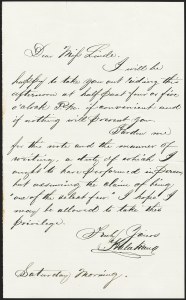 Dear Miss Linde.
I will be
happy to take you out riding this
afternoon at half past four or five
o'clock P.M. if convenient and
if nothing will prevent you.
Pardon me
for the note and the manner of
writing, a duty of which I
ought to have performed in person
but assuming the claim of being
"one of the select few" I hope I
may be allowed to take this
privilege.
Truly Yours
Saturday Morning.